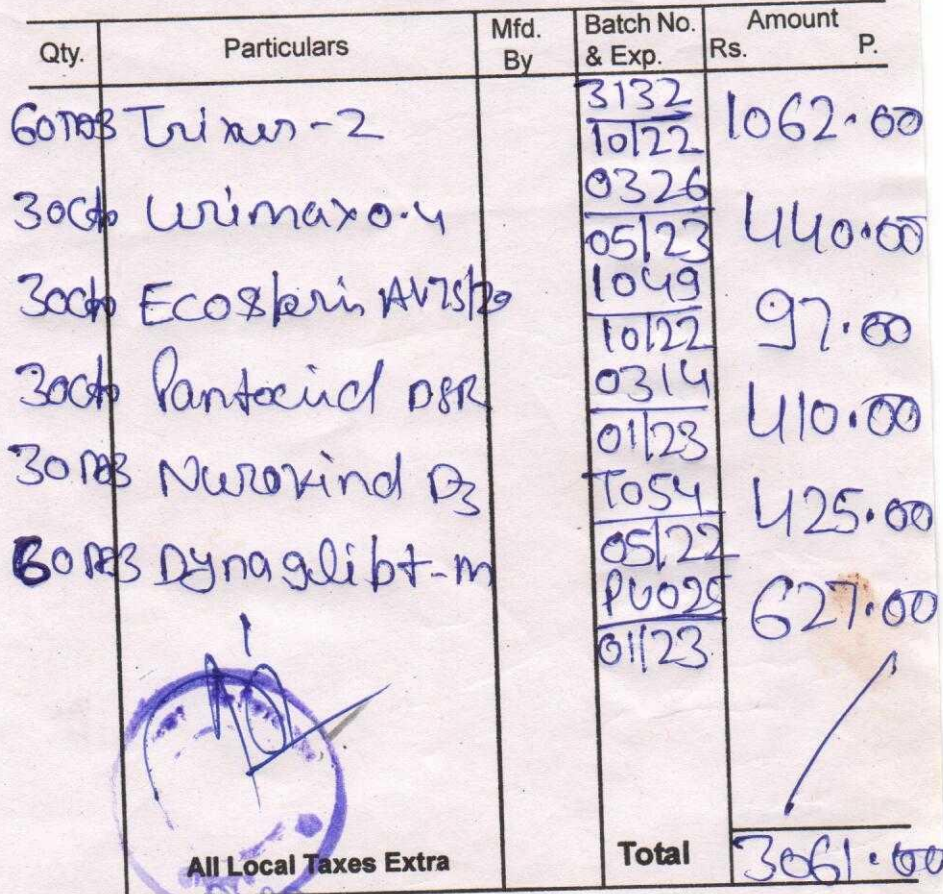 Qty. Particulars Mfd. By Batch No. & Exp. Amount Rs. P.
60TAB Trixer-2 3132 10/22 1062.00
30Cap Urimax 0.4 0326 05/23 440.00
30Cap Ecosprin AV75/20 1049 10/22 97.00
30Cap Pantocid DSR 0314 01/23 410.00
30TAB Nurokind D3 T054 05/22 425.00
60TAB Dynaglipt-m PU025 01/23 627.00
All Local Taxes Extra Total 3061.00